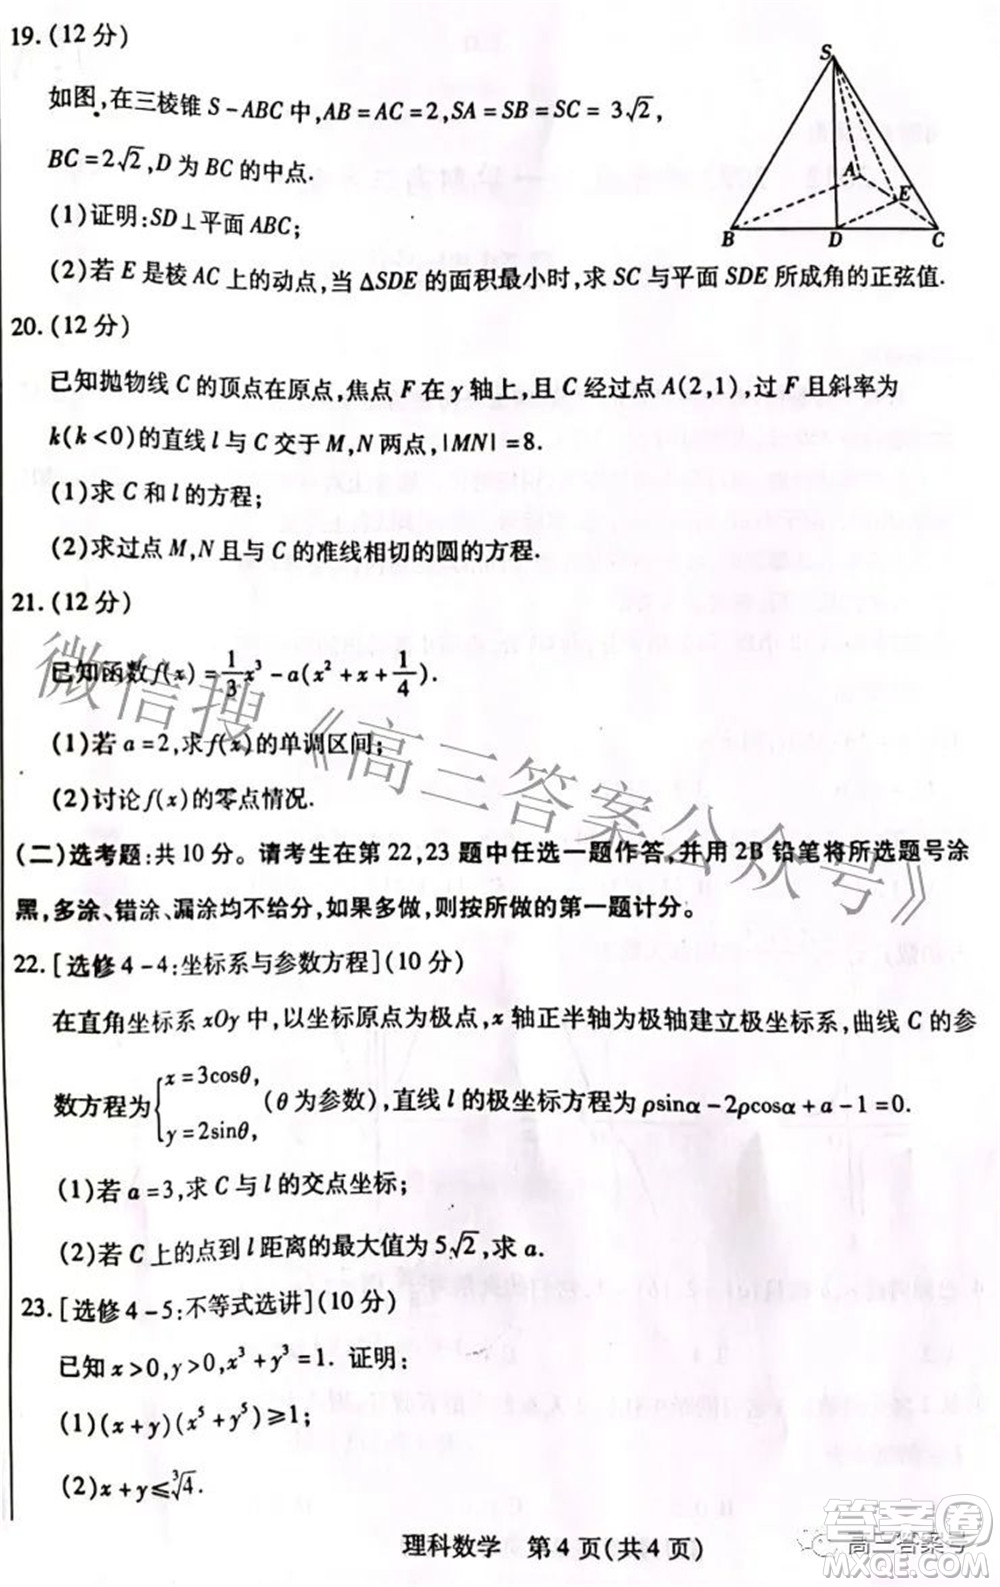 19.(12分)
如图,在三棱锥 S-ABC 中,AB=AC=2,SA=SB=SC=3√2,
BC=2√2,D 为 BC 的中点.
(1)证明:SD⊥平面 ABC;
(2)若 E 是棱 AC 上的动点,当 △SDE 的面积最小时,求 SC 与平面 SDE 所成角的正弦值.
S
A
E
B
D
C
20.(12分)
已知抛物线 C 的顶点在原点,焦点 F 在 y 轴上,且 C 经过点 A(2,1),过 F 且斜率为
k(k<0)的直线 l 与 C 交于 M,N 两点,|MN|=8.
(1)求 C 和 l 的方程;
(2)求过点 M,N 且与 C 的准线相切的圆的方程.
21.(12分)
已知函数 f(x)=1/3x³-a(x²+x+1/4).
(1)若 a=2,求 f(x)的单调区间;
(2)讨论 f(x)的零点情况.
(二)选考题:共10分。请考生在第22,23题中任选一题作答,并用2B铅笔将所选题号涂
黑,多涂、错涂、漏涂均不给分,如果多做,则按所做的第一题计分。
22.[选修4-4:坐标系与参数方程](10分)
在直角坐标系 xOy 中,以坐标原点为极点,x 轴正半轴为极轴建立极坐标系,曲线 C 的参
数方程为{x=3cosθ, y=2sinθ, (θ为参数),直线 l 的极坐标方程为 ρsinα-2ρcosα+a-1=0.
(1)若 a=3,求 C 与 l 的交点坐标;
(2)若 C 上的点到 l 距离的最大值为 5√2,求 a.
23.[选修4-5:不等式选讲](10分)
已知 x>0,y>0,x³+y³=1. 证明:
(1)(x+y)(x⁵+y⁵)≥1;
(2)x+y≤∛4.
理科数学 第4页(共4页)
微信搜《高三答案公众号》
高三答案号
答案圈
MXQE.COM